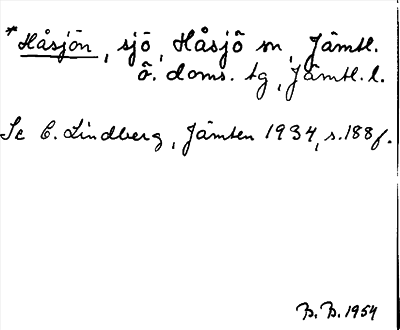 *Håsjön, sjö, Håsjö sn, Jämtl.
ö. doms. tg, Jämtl. l.
Se C. Lindberg, Jämten 1934, s. 188f.
B. B. 1954